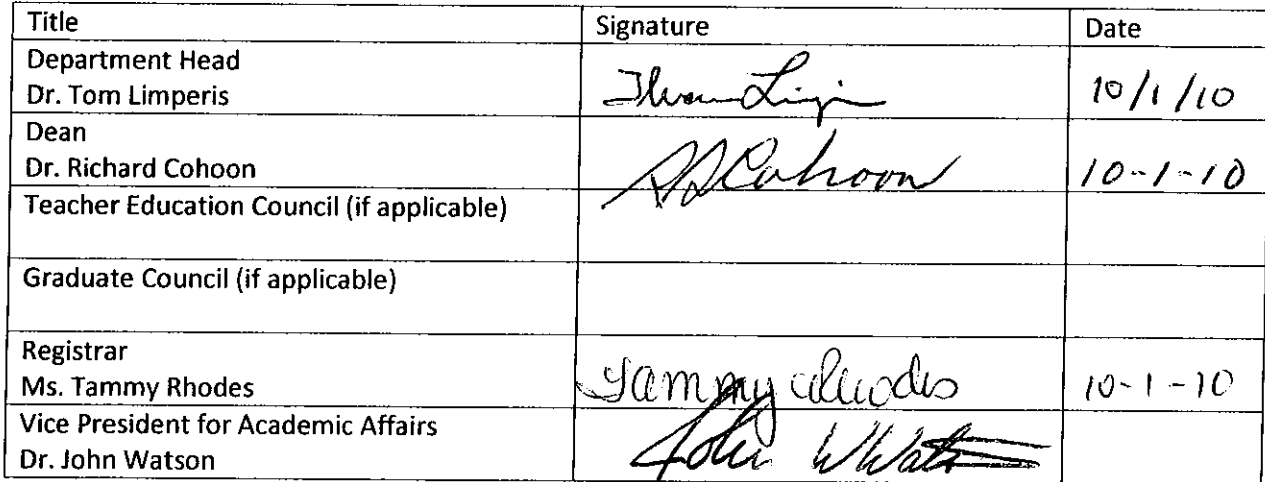 Title Signature Date
Department Head
Dr. Tom Limperis 10/1/10
Dean
Dr. Richard Cohoon RDCohoon 10-1-10
Teacher Education Council (if applicable)
Graduate Council (if applicable)
Registrar
Ms. Tammy Rhodes Tammy Rhodes 10-1-10
Vice President for Academic Affairs
Dr. John Watson John W Watson